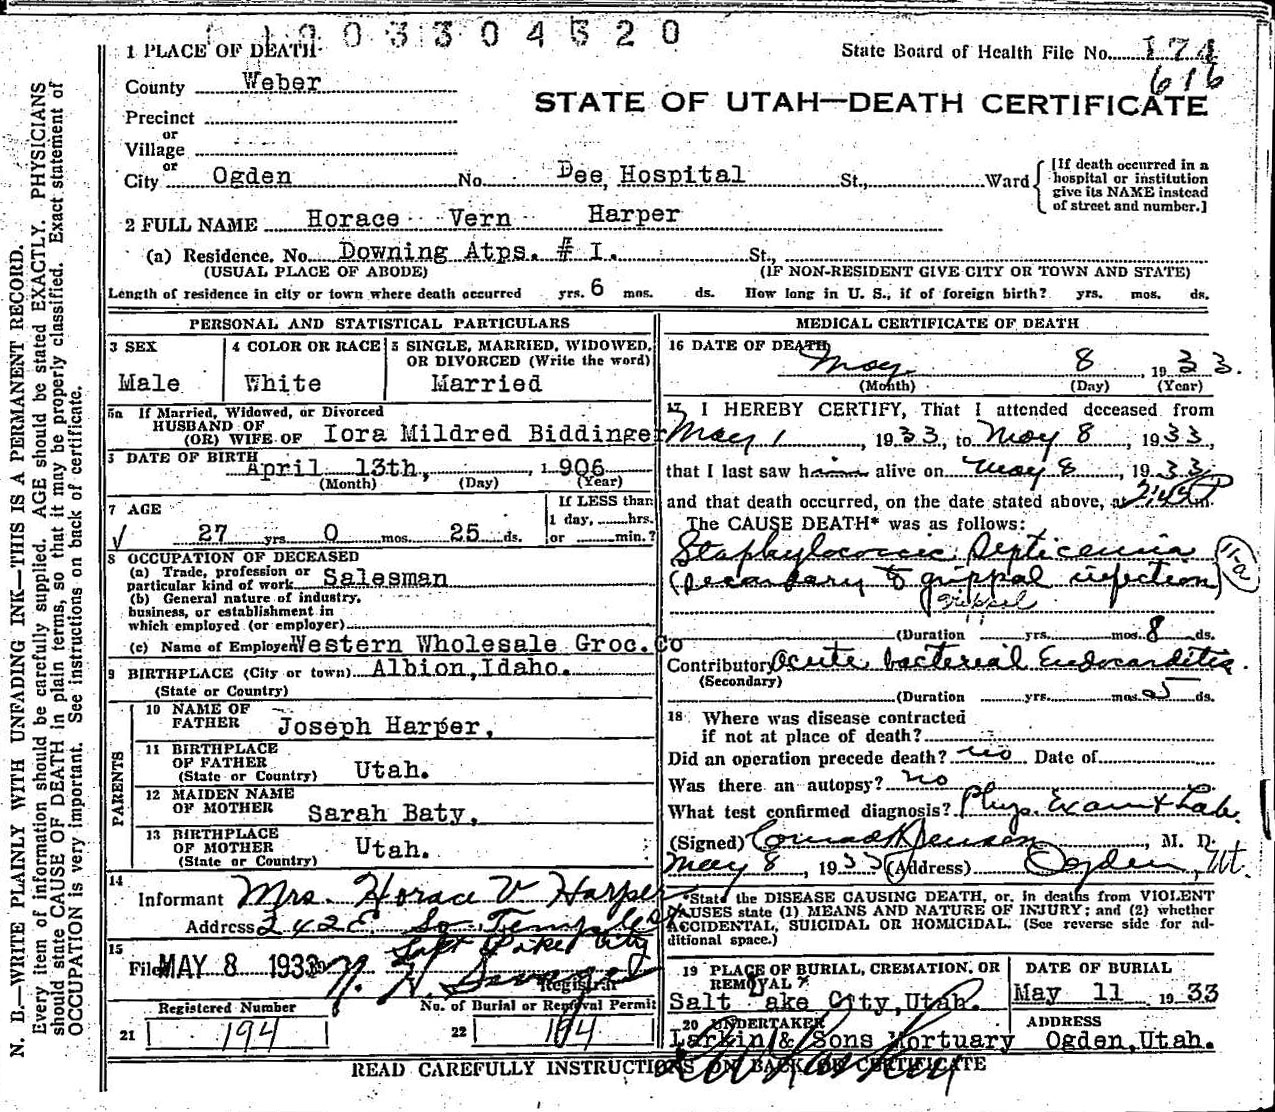 1 0 0 3 3 0 4 5 2 0
1 PLACE OF DEATH
State Board of Health File No. 174
616
County Weber
STATE OF UTAH—DEATH CERTIFICATE
Precinct
or
Village
or
City Ogden No. Dee Hospital St., Ward
[If death occurred in a hospital or institution give its NAME instead of street and number.]
2 FULL NAME Horace Vern Harper
(a) Residence. No. Downing Atps. # I. St.,
(USUAL PLACE OF ABODE) (IF NON-RESIDENT GIVE CITY OR TOWN AND STATE)
Length of residence in city or town where death occurred yrs. 6 mos. ds. How long in U. S., if of foreign birth? yrs. mos. ds.
PERSONAL AND STATISTICAL PARTICULARS
3 SEX
Male
4 COLOR OR RACE
White
5 SINGLE, MARRIED, WIDOWED,
OR DIVORCED (Write the word)
Married
5a If Married, Widowed, or Divorced
HUSBAND OF
(OR) WIFE OF Iora Mildred Biddinger
DATE OF BIRTH
April 13th, 1906
(Month) (Day) (Year)
7 AGE
27 yrs. 0 mos. 25 ds.
If LESS than
1 day, hrs.
or min.?
8 OCCUPATION OF DECEASED
(a) Trade, profession or
particular kind of work Salesman
(b) General nature of industry,
business, or establishment in
which employed (or employer)
(c) Name of Employer Western Wholesale Groc. Co
9 BIRTHPLACE (City or town) Albion, Idaho.
(State or Country)
PARENTS
10 NAME OF
FATHER Joseph Harper,
11 BIRTHPLACE
OF FATHER
(State or Country) Utah.
12 MAIDEN NAME
OF MOTHER Sarah Baty,
13 BIRTHPLACE
OF MOTHER
(State or Country) Utah.
14
Informant Mrs. Horace V Harper
Address 242 E So. Temple St
Salt Lake City
15
Filed MAY 8 1933
Registrar
Registered Number
21 194
No. of Burial or Removal Permit
22 194
MEDICAL CERTIFICATE OF DEATH
16 DATE OF DEATH
May 8, 1933.
(Month) (Day) (Year)
17 I HEREBY CERTIFY, That I attended deceased from
May 1, 1933, to May 8, 1933,
that I last saw him alive on May 8 1933
and that death occurred, on the date stated above, at
The CAUSE DEATH* was as follows:
Staphylococcic Septicemia
(Secondary to grippal infection)
grippal
11a
(Duration yrs. mos. 8 ds.
Contributory Acute bacterial Endocarditis.
(Secondary)
(Duration yrs. mos. 5 ds.
18 Where was disease contracted
if not at place of death?
Did an operation precede death? no Date of
Was there an autopsy? no
What test confirmed diagnosis? Phys. Exam & Lab.
(Signed) Conrad H Jensen, M. D.
May 8, 1933 (Address) Ogden, Ut.
*State the DISEASE CAUSING DEATH, or, in deaths from VIOLENT
CAUSES state (1) MEANS AND NATURE OF INJURY; and (2) whether
ACCIDENTAL, SUICIDAL OR HOMICIDAL. (See reverse side for ad-
ditional space.)
19 PLACE OF BURIAL, CREMATION, OR
REMOVAL
Salt Lake City, Utah.
DATE OF BURIAL
May 11 1933
20 UNDERTAKER
Larkin & Sons Mortuary
ADDRESS
Ogden, Utah.
READ CAREFULLY INSTRUCTIONS ON BACK OF CERTIFICATE
N. B.—WRITE PLAINLY WITH UNFADING INK—THIS IS A PERMANENT RECORD.
Every item of information should be carefully supplied. AGE should be stated EXACTLY. PHYSICIANS
should state CAUSE OF DEATH in plain terms, so that it may be properly classified. Exact statement of
OCCUPATION is very important. See instructions on back of certificate.